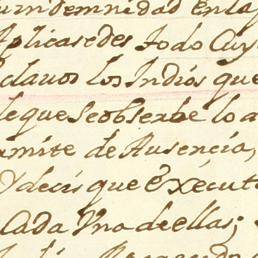 indemnidad en la
Aplicase des todo cuy
clavos los Indios que
leque se observe lo a
amite de Ausencia,
Y decis que éxécut
Cada Una de ellas;